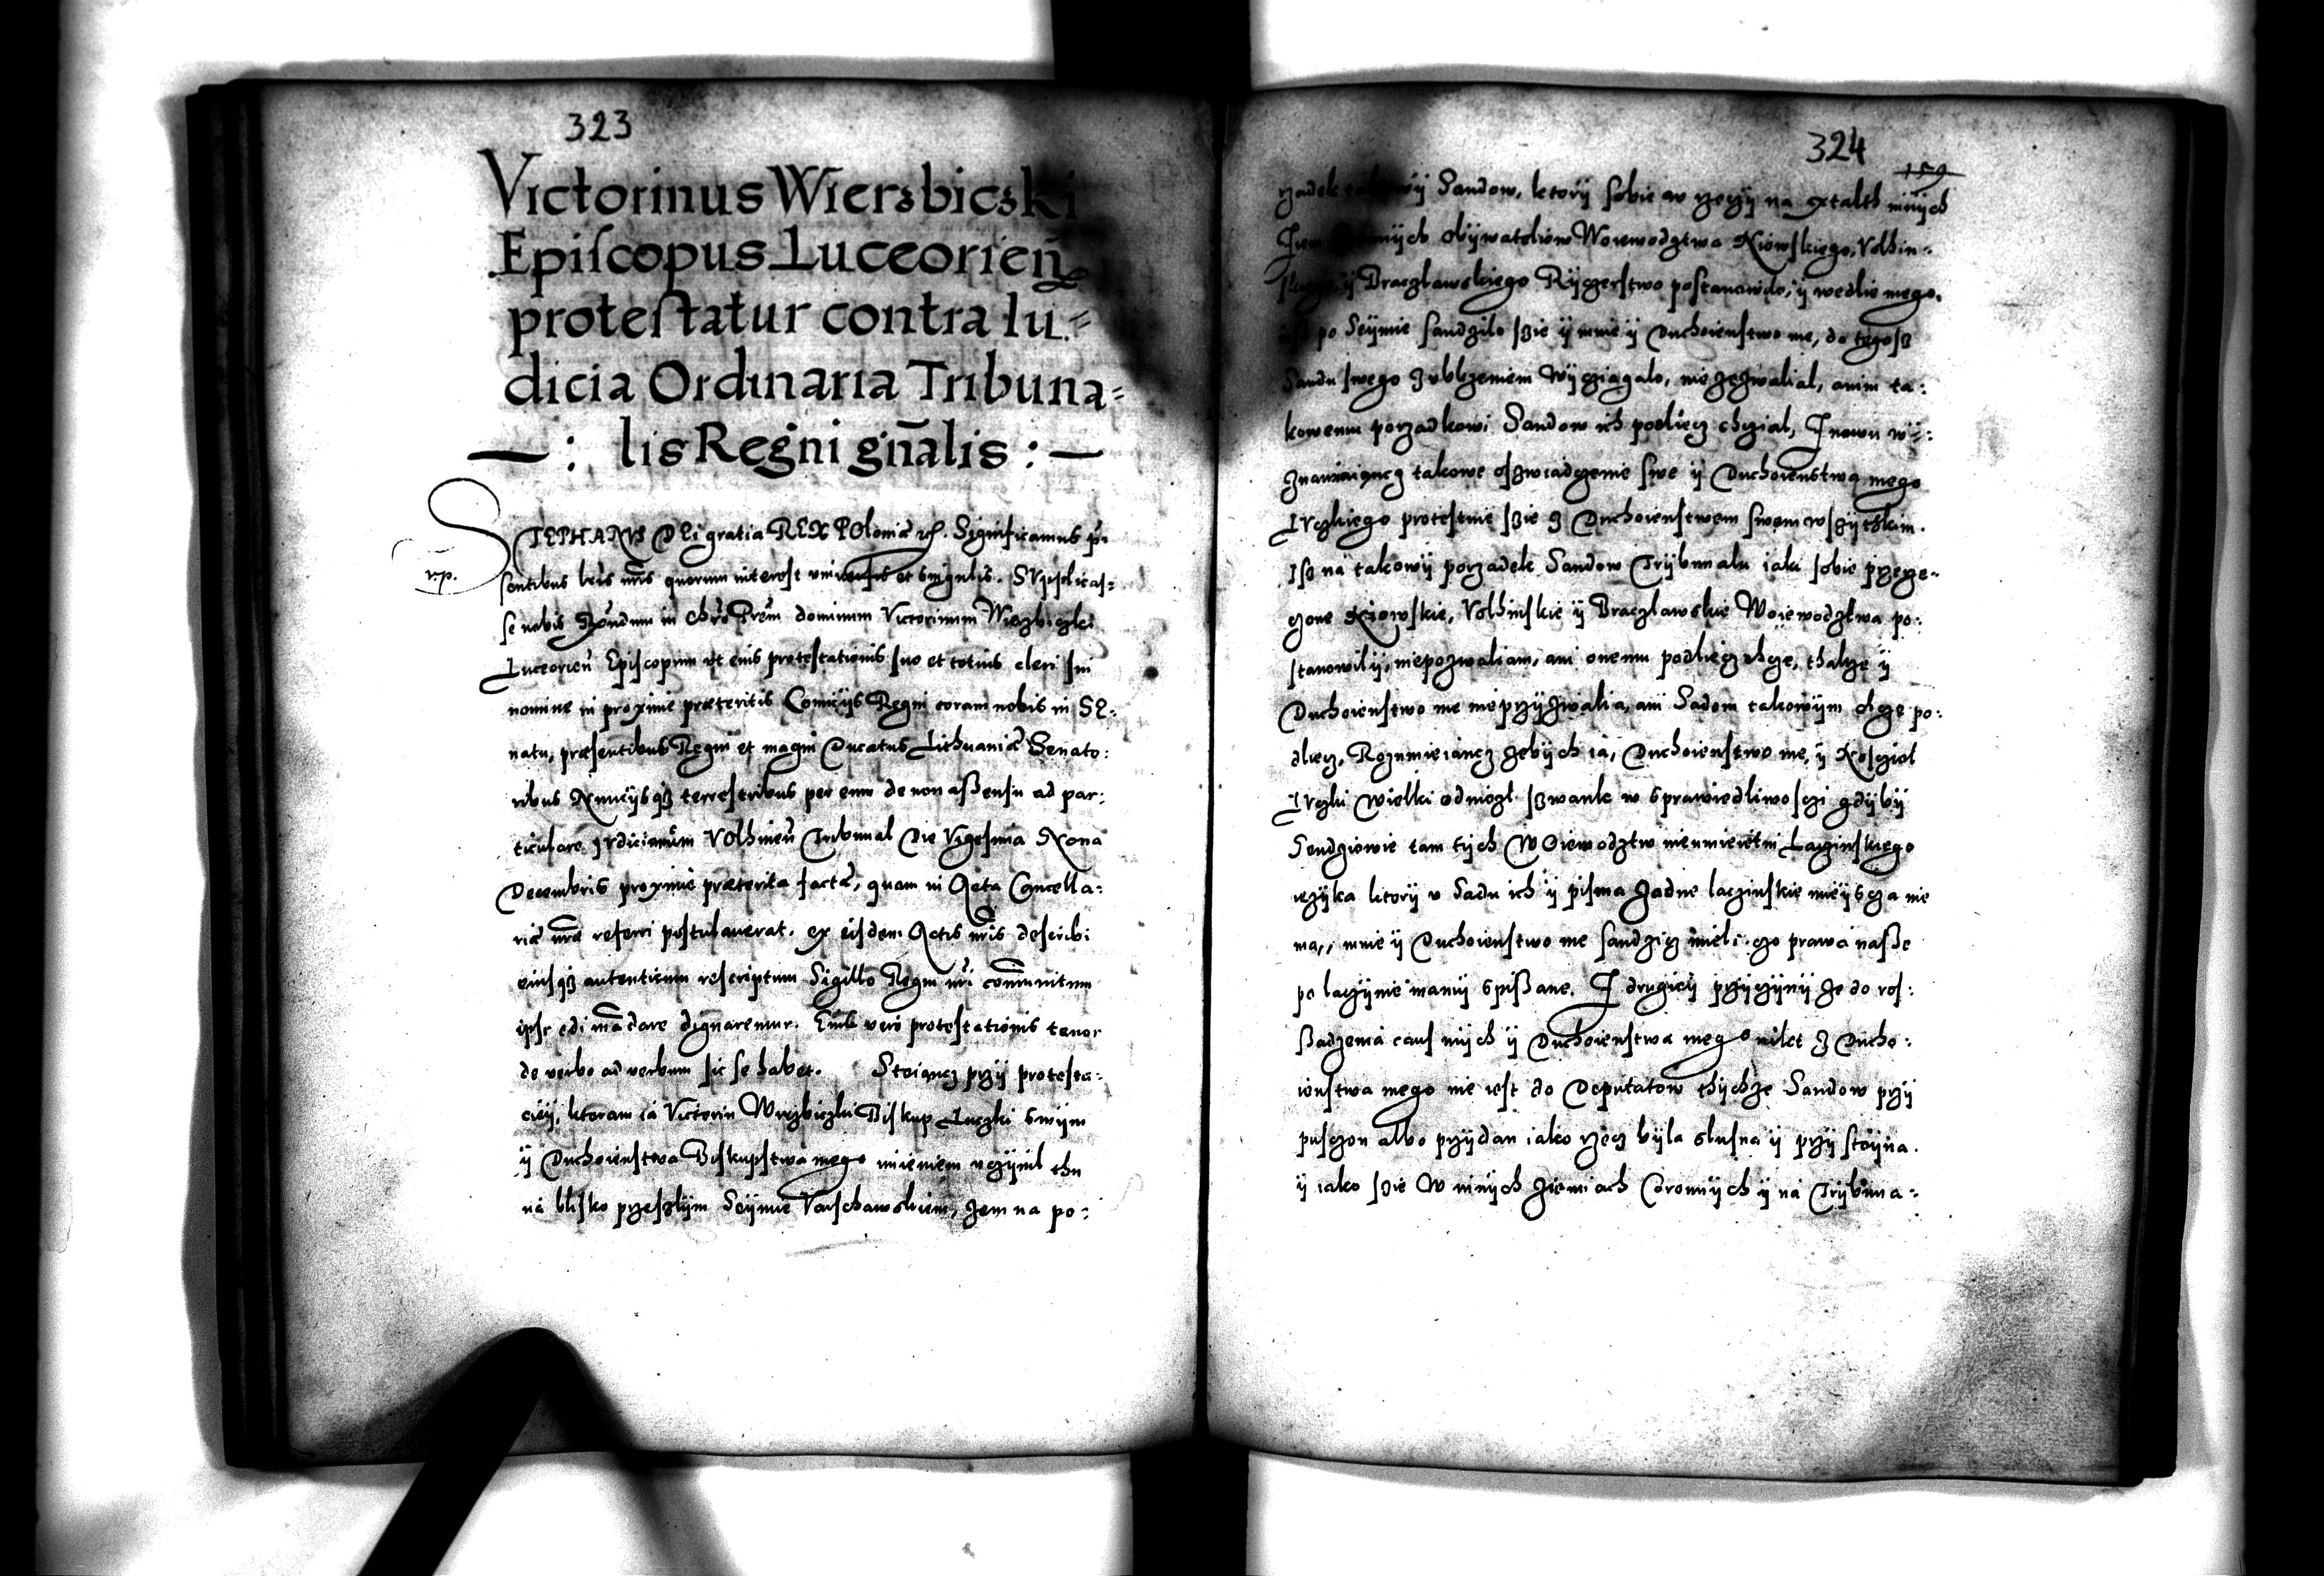 323
Victorinus Wierzbiczki
Episcopus Luceorien̄
protestatur contra Iu⸗
dicia Ordinaria Tribuna⸗
— : lis Regni gn̄alis : —
STEPHANVS DEi gratia REX POloniæ etc. Significamus p̄⸗
r.p.
sentibus lr̄is nr̄is quorum interest vniuersis et singulis. SVpplicas⸗
se nobis Rn̄dum in Chr̄o Prēm dominum Victorinum Wierzbiczki
Luceorien̄ Episcopum vt eius protestationis suo et totius cleri sui
nomine in proxime præteritis Comicijs Regni coram nobis in SE⸗
natu, præsentibus Regni et magni Ducatus Lithuaniæ Senato⸗
ribus Nuncijsqʒ terrestribus per eum de non aßensu ad par⸗
ticulare Iudiciorum Volhinen̄ Tribunal Die Vigesima Nona
Decembris proxime præterita factæ, quam in Acta Cancella⸗
riæ nr̄æ referri postulauerat. ex eisdem Actis nr̄is describi
eiusqʒ autenticum rescriptum Sigillo Regni nr̄i com̄unitum
ipsi edi mādare dignaremur. Eius vero protestationis tenor
de verbo ad verbum sic se habet. Stoiancz przÿ protesta⸗
ciÿ, ktoram ia Victorin Wirzbiczki Biskup Luczki swÿm
ÿ Duchoienstwa Biskupstwa mego imieniem vczÿnil thu
na blisko przeszlÿm Seÿmie Varschawskiem, zem na po⸗
324
159
rzadek takowÿ Sandow, ktorÿ sobie w rzeczÿ na xtalth innÿch
obÿwatelow Woiewodztwa Kiowskiego, Volhin⸗
ÿ Braczlawskiego Rÿczerstwo postanowilo, ÿ wedlie niego,
po Seÿmie sandzilo szie ÿ mnie ÿ Duchoienstwo me, do tegosz
Sandu swego z vblizeniem wÿcziagalo, nie zezwalial, anim ta⸗
kowemu porzadkowi Sandow ich podliecz chczial, I nowu wÿ⸗
znawaiancz takowe oszwiadczenie swe ÿ Duchoienstwa mego
LVczkiego protestuie szie z Duchoienstwem swem wszÿtskim.
Isz na takowÿ porzadek Sandow Trÿbunalu iaki sobie przerze⸗
czone Kiowskie, Volhinskie ÿ Braczlawskie Woiewodztwa po⸗
stanowilÿ, niepozwaliam, ani onemu podliecz chcze, thakze ÿ
Duchoienstwo me nieprzÿzwalia, ani Sadom takowÿm chcze po⸗
dliecz, Rozumieiancz zebÿch ia, Duchoienstwo me, ÿ Kosciol
LVczki wielki odniozl szwank w sprawiedliwosczi gdÿbÿ
Sendziowie tam tÿch WOiewodztw nieumieietni Laczinskiego
iezÿka ktorÿ v Sadu ich ÿ pisma zadne laczinskie mieÿscza nie
ma, mnie ÿ Duchoienstwo me sandzicz mieli czo prawa nasze
po laczÿnie mamÿ spißane. I drugieÿ przÿczÿnÿ ze do ros⸗
ßadzenia caus mÿch ÿ Duchoienstwa mego nikt z Ducho⸗
ienstwa mego nie iest do Deputatow thÿchze Sandow przÿ
puszczon albo przÿdan iako rzecz bÿla slusna ÿ przÿstoÿna.
ÿ iako szie W innÿch ziemiach Coronnÿch ÿ na Trÿbuna⸗